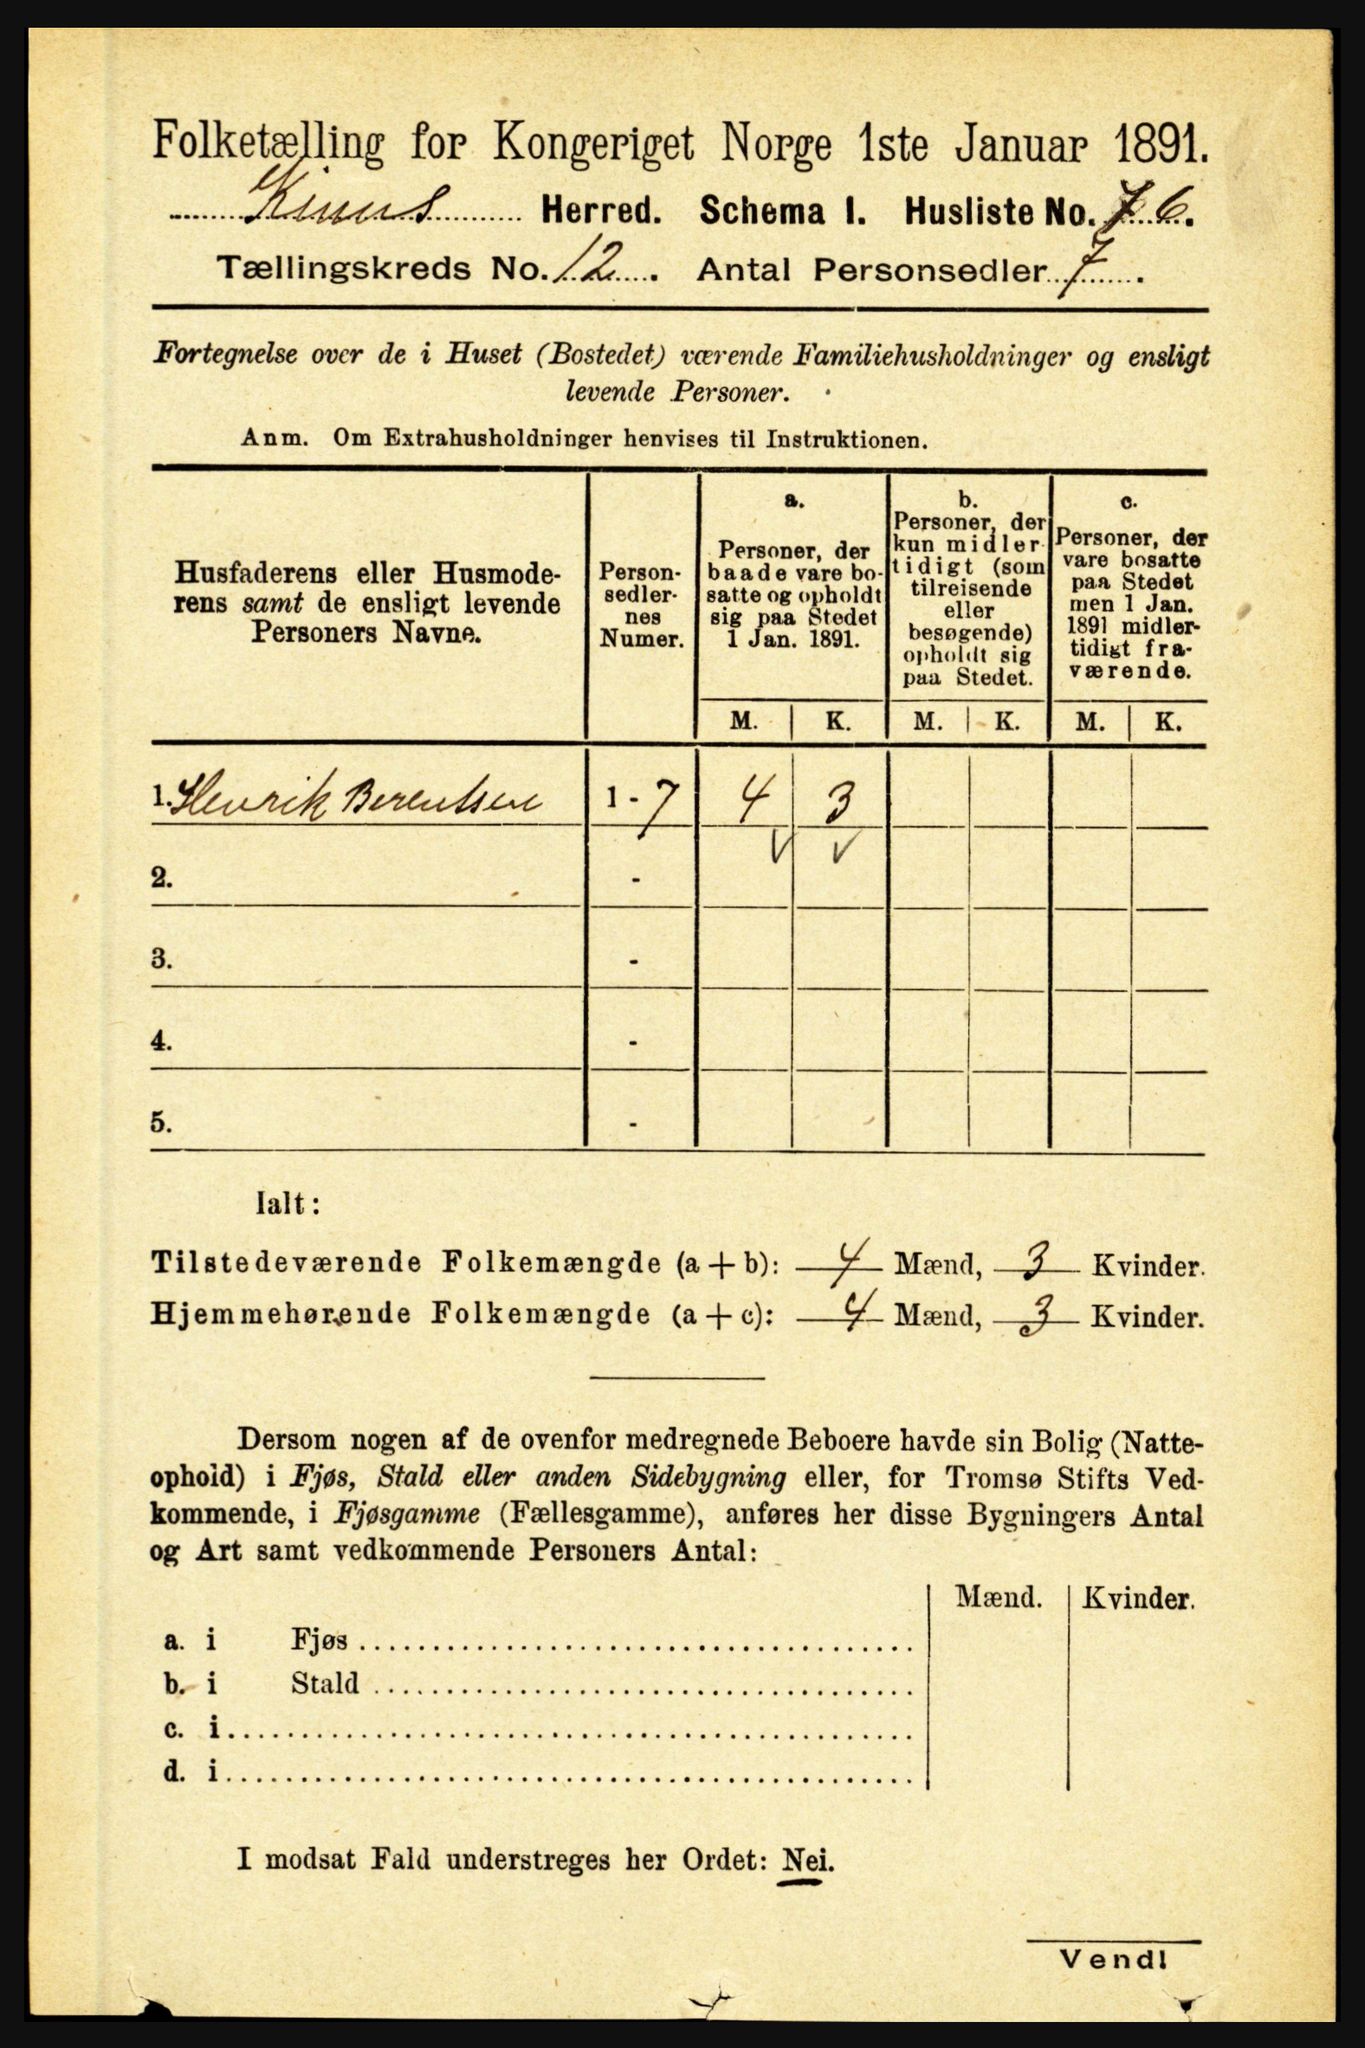 Folketælling for Kongeriget Norge 1ste Januar 1891.
Kinns Herred. Schema I. Husliste No. 76.
Tællingskreds No. 12. Antal Personsedler 7.
Fortegnelse over de i Huset (Bostedet) værende Familiehusholdninger og ensligt
levende Personer.
Anm. Om Extrahusholdninger henvises til Instruktionen.
Husfaderens eller Husmode-
rens samt de ensligt levende
Personers Navne.
Person-
sedler-
nes
Numer.
a.
Personer, der
baade vare bo-
satte og opholdt
sig paa Stedet
1 Jan. 1891.
b.
Personer, der
kun midler-
tidigt (som
tilreisende
eller
besøgende)
opholdt sig
paa Stedet.
c.
Personer, der
vare bosatte
paa Stedet
men 1 Jan.
1891 midler-
tidigt fra-
værende.
M. K. M. K. M. K.
1. Henrik Berentsen 1 - 7 4 3
2. -
3. -
4. -
5. -
Ialt:
Tilstedeværende Folkemængde (a + b): 4 Mænd, 3 Kvinder.
Hjemmehørende Folkemængde (a + c): 4 Mænd, 3 Kvinder.
Dersom nogen af de ovenfor medregnede Beboere havde sin Bolig (Natte-
ophold) i Fjøs, Stald eller anden Sidebygning eller, for Tromsø Stifts Ved-
kommende, i Fjøsgamme (Fællesgamme), anføres her disse Bygningers Antal
og Art samt vedkommende Personers Antal:
Mænd. Kvinder.
a. i Fjøs
b. i Stald
c. i
d. i
I modsat Fald understreges her Ordet: Nei.
Vend!